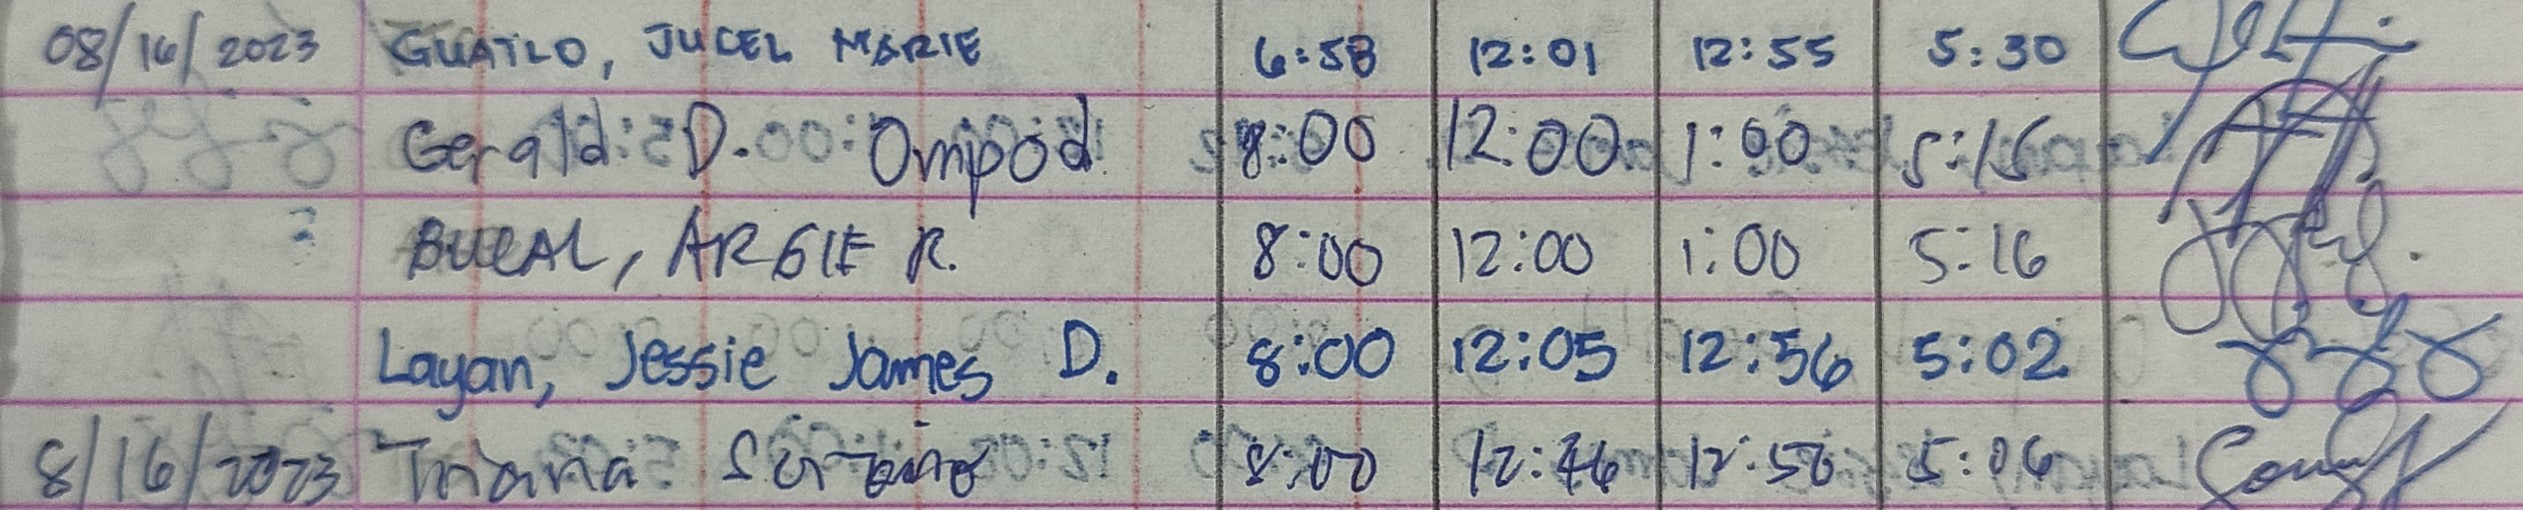 08/16/2023 GUATLO, JUCEL MARIE 6:58 12:01 12:55 5:30
Gerald D. Ompod 8:00 12:00 1:00 5:16
BUCAL, ARGIE R. 8:00 12:00 1:00 5:16
Layan, Jessie James D. 8:00 12:05 12:56 5:02
8/16/2023 8:00 12:46 12:56 5:06